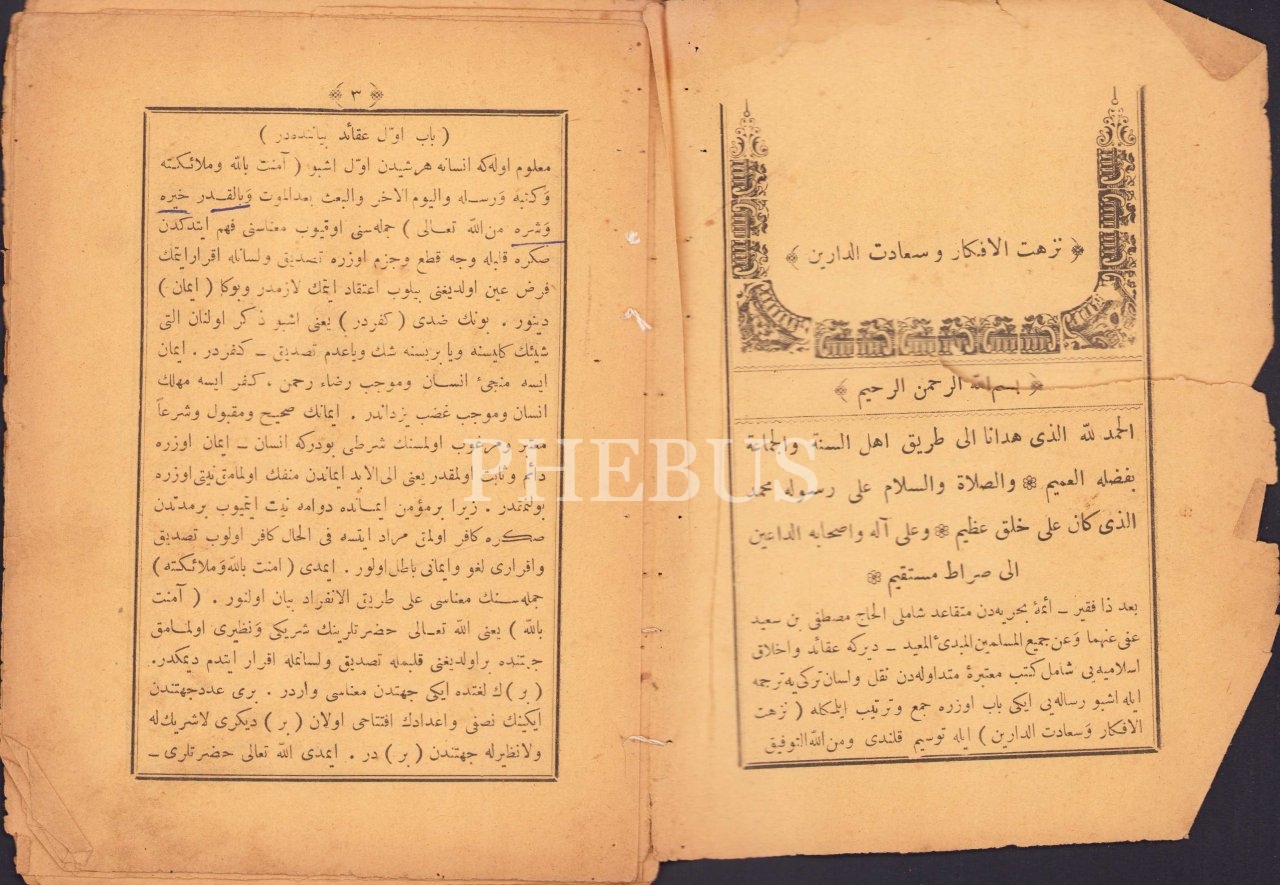 ﴿ نزهت الافكار و سعادت الدارين ﴾
﴿ بسم الله الرحمن الرحيم ﴾
الحمد لله الذى هدانا الى طريق اهل السنة والجماعة
بفضله العميم ❁ والصلاة والسلام على رسوله محمد
الذى كان على خلق عظيم ❁ وعلى آله واصحابه الداعين
الى صراط مستقيم ❁
بعد ذا فقير ـ ائمهٔ بحريه‌دن متقاعد شاملى الحاج مصطفى بن سعيد
عفى عنهما وَعن جميع المسلمين المبدئ المعيد ـ ديركه عقائد واخلاق
اسلاميه‌يى شامل كتب معتبرهٔ متداوله‌دن نقل ولسان تركى‌يه ترجمه
ايله اشبو رساله‌يى ايكى باب اوزره جمع وترتيب ايلمكله ( نزهت
الافكار وَسعادت الدارين ) ايله توسيم قلندى ومن الله التوفيق
﴿ ٣ ﴾
( باب اوّل عقائد بياننده‌در )
معلوم اوله‌كه انسانه هرشيدن اوّل اشبو ( آمنت بالله وملائكته
وَكتبه وَرسله واليوم الاخر والبعث بعدالموت وَبالقدر خيره
وَشره من الله تعالى ) جمله‌سنى اوقيوب معناسنى فهم ايتدكدن
صكره قلبله وجه قطع وجزم اوزره تصديق ولسانله اقرار ايتمك
فرض عين اولديغنى بيلوب اعتقاد ايتمك لازمدر وبوكا ( ايمان )
دينور . بونك ضدى ( كفردر ) يعنى اشبو ذكر اولنان التى
شيئك كليسنه ويا بريسنه شك وياعدم تصديق ـ كفردر . ايمان
ايسه منجئ انسان وموجب رضاء رحمن ، كفر ايسه مهلك
انسان وموجب غضب يزداندر . ايمانك صحيح ومقبول وشرعاً
معتبر ومرغوب اولمسنك شرطى بودركه انسان ـ ايمان اوزره
دائم وثابت اولمقدر يعنى الى الابد ايماندن منفك اولمامق نيتى اوزره
بولنمقدر . زيرا برمؤمن ايماننده دوامه نيت ايتميوب برمدتدن
صكره كافر اولمق مراد ايتسه فى الحال كافر اولوب تصديق
واقرارى لغو وايمانى باطل اولور . ايمدى ( امنت بالله وَملائكته )
جمله‌سنك معناسى على طريق الانفراد بيان اولنور . ( آمنت
بالله ) يعنى الله تعالى حضرتلرينك شريكى وَنظيرى اولمامق
جهتنده بر اولديغنى قلبمله تصديق ولسانمله اقرار ايتدم ديمكدر.
( بر ) ك لغتده ايكى جهتدن معناسى واردر . برى عددجهتندن
ايكينك نصفى واعدادك افتتاحى اولان ( بر ) ديكرى لاشريك له
ولانظيرله جهتندن ( بر ) در . ايمدى الله تعالى حضرتلرى ـ
PHEBUS